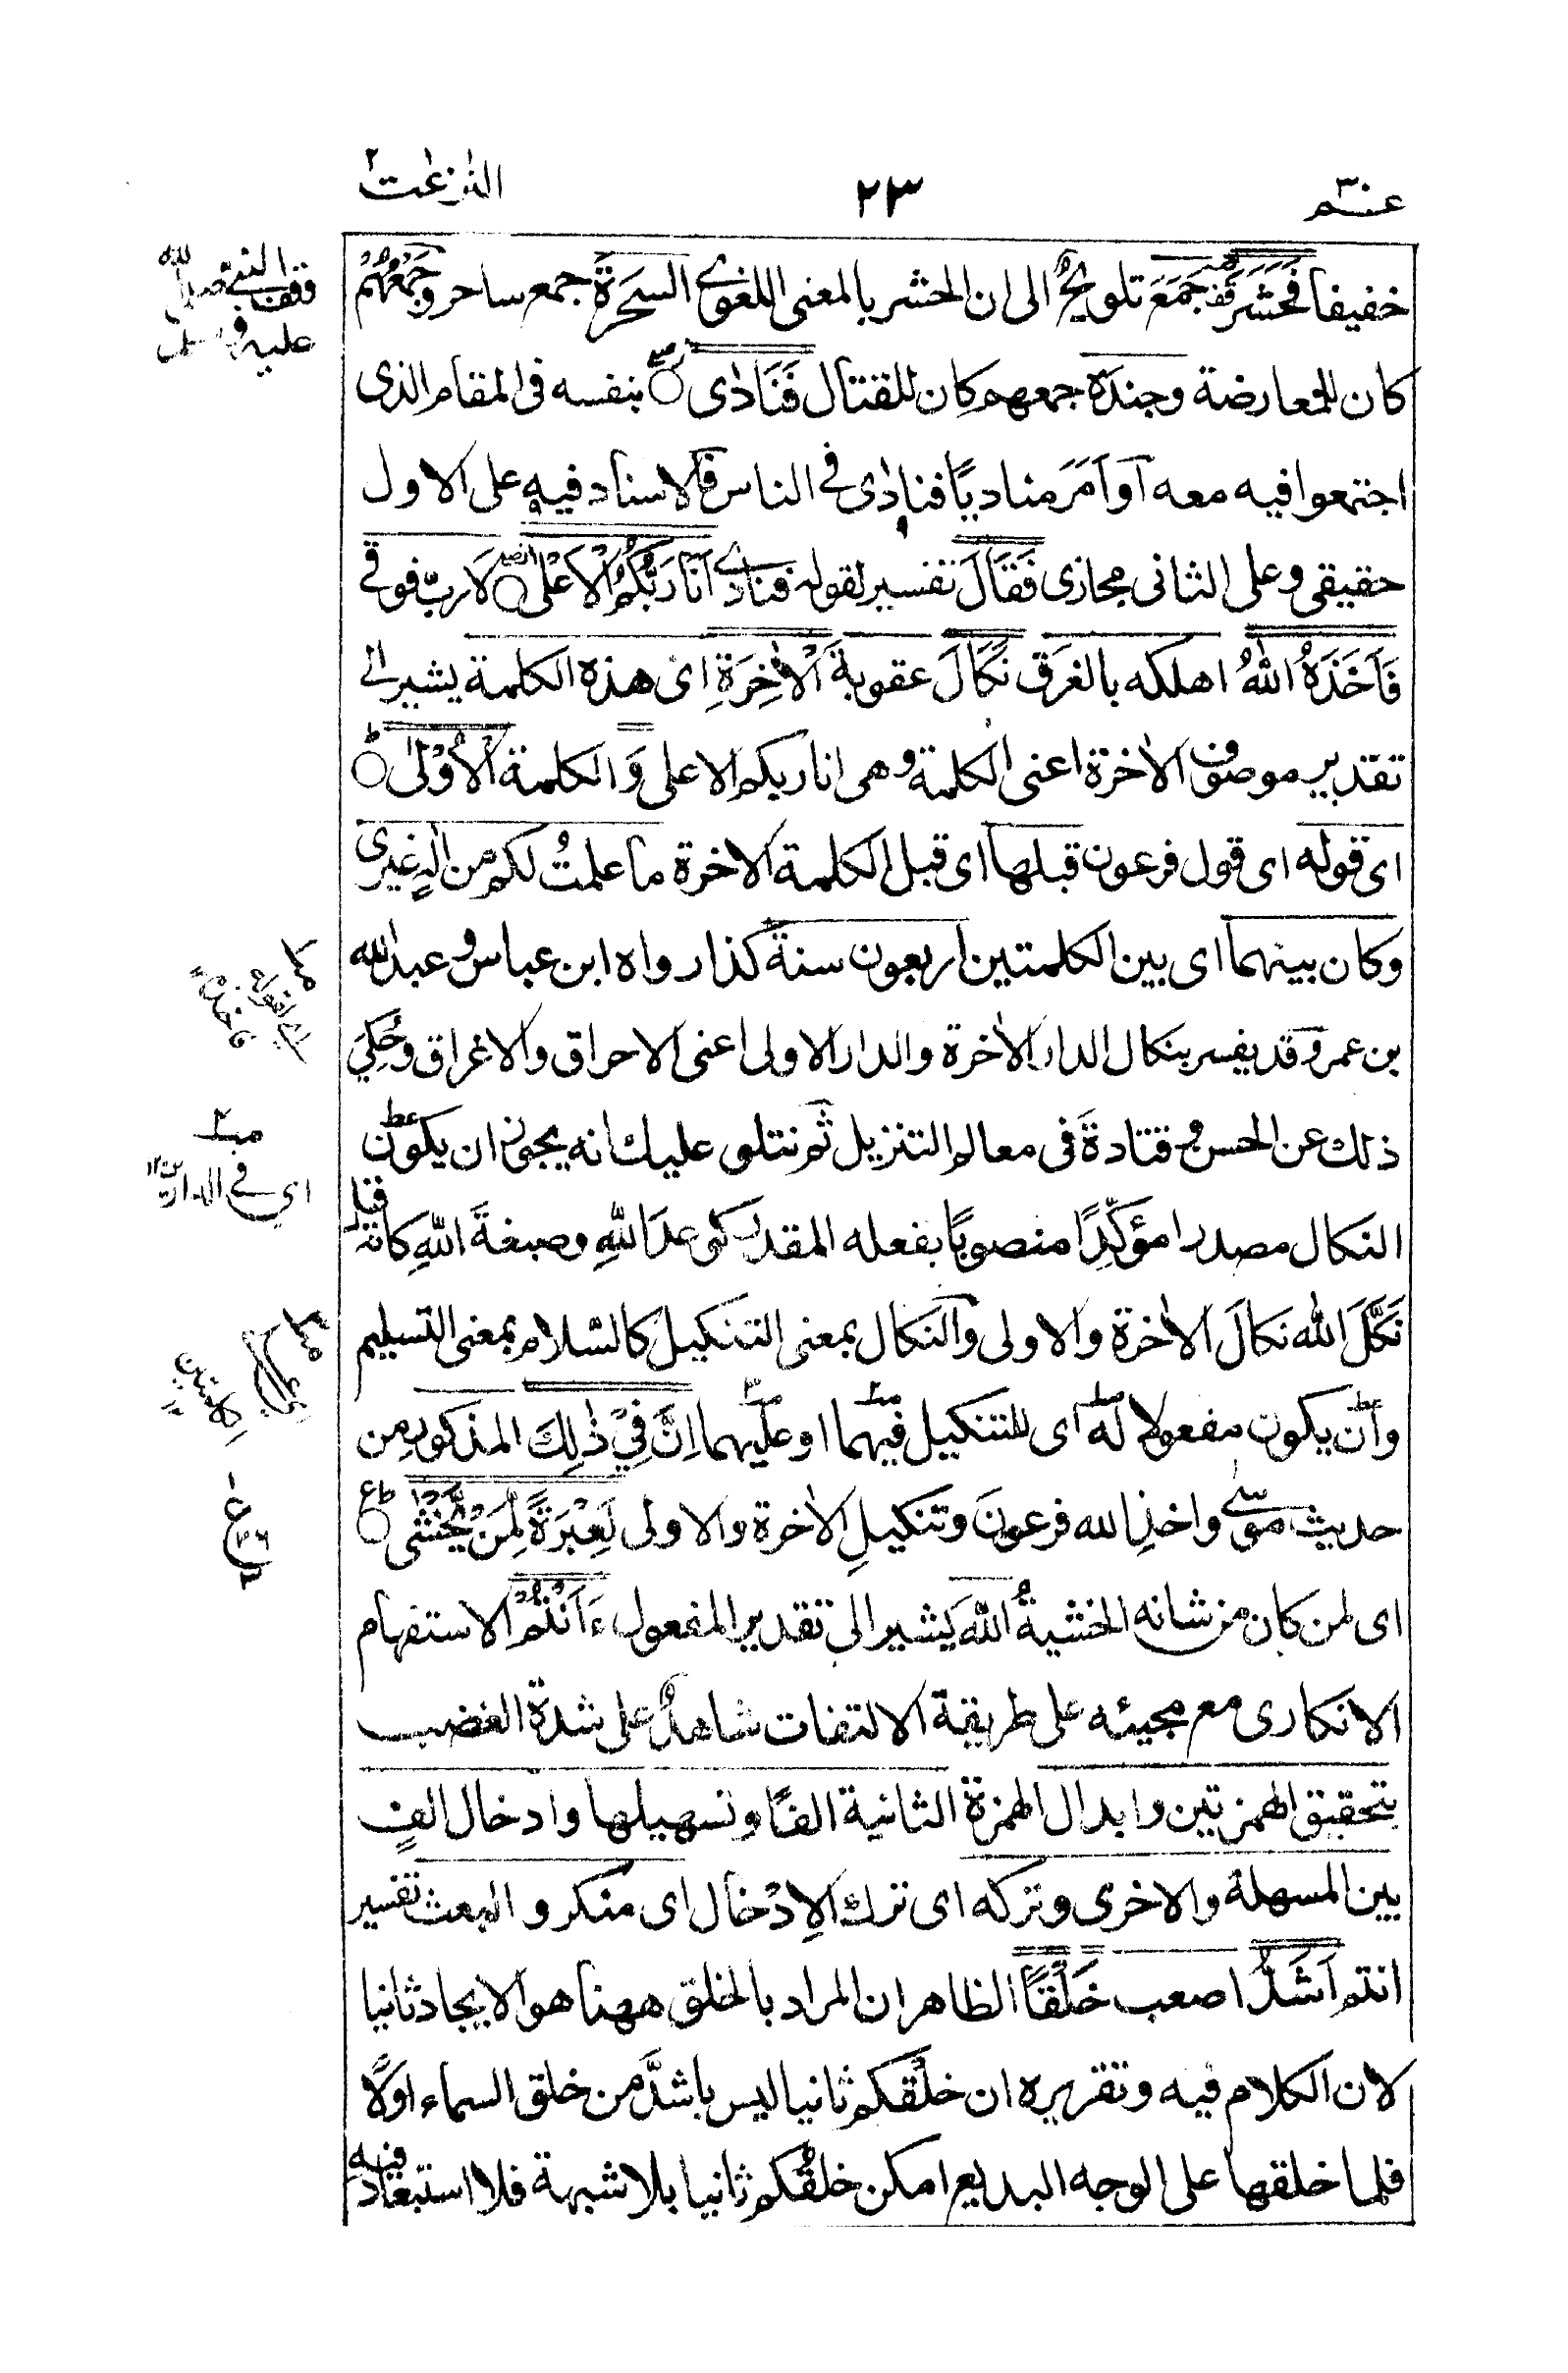 عم ٣٠
٢٣
النزعت ٢
خفيفا فَحَشَرَ جَمَعَ تلويحٌ الى ان الحشر بالمعنى اللغوي السَحَرَةَ جمع ساحر وجَمْعُهُمْ
كان للمعارضة وجندَه جمعهم كان للقتال فَنَادٰى ○ بنفسه فى المقام الذى
اجتمعوا فيه معه اَو اَمَرَ مناديًا فنادٰى في الناس فالاسناد فيه على الاول
حقيقى وعلى الثانى مجازى فَقَالَ تفسير لقوله فنادٰى اَنَا رَبُّكُمُ الْاَعْلٰى ○ لَا ربّ فوقي
فَاَخَذَهُ اللّٰهُ اهلكه بالغرق نَكَالَ عقوبةَ الْاٰخِرَةِ اى هذه الكلمة يشير الى
تقدير موصوف الاٰخرة اعنى الكلمة وهى انا ربكم الاعلى وَ الكلمة الْاُوْلٰى ○
اى قوله اى قول فرعون قبلها اى قبل الكلمة الاخرة ما علمتُ لكم من الٰهٍ غيرى
وكان بينهما اى بين الكلمتين اربعون سنةً كذا رواه ابن عباس و عبد الله
بن عمر وقد يفسر بنكال الدار الاٰخرة والدار الاولى اعنى الاحراق والاغراق وحُكِيَ
ذلك عن الحسن و قتادةَ فى معالم التنزيل ثم نتلو عليك انه يجوز ان يكون
النكال مصدرا مؤكِّدًا منصوبًا بفعله المقدر كوعدَ اللّٰهِ وصبغةَ اللّٰهِ كانه قيل
نَكَّلَ الله نكالَ الاٰخرة والاولى والنكال بمعنى التنكيل كالسّلام بمعنى التسليم
وان يكون مفعولا له اى للتنكيل فيهما او عليهما اِنَّ فِيْ ذٰلِكَ المذكورِ من
حديث موسٰى واخذِ الله فرعونَ وتنكيلِ الاٰخرة والاولى لَعِبْرَةً لِّمَنْ يَّخْشٰى ○
اى لمن كان من شانه الخشيةُ اللّٰهَ يشير الى تقدير المفعول ءَاَنْتُمْ الاستفهام
الانكارى مع مجيئه على طريقة الالتفات شاهدٌ على شدة الغضب
بتحقيق الهمزتين وابدال الهمزة الثانية الفًا وتسهيلها وادخال الفٍ
بين المسهلة والاخرى وتركه اى ترك الاِدْخال اى منكرو البعث تفسير
انتم اَشَدُّ اصعب خَلْقًا الظاهر ان المراد بالخلق ههنا هو الايجاد ثانيا
لان الكلام فيه وتقريره ان خلْقَكم ثانيا ليس باشدَّ من خلق السماء اوّلًا
فلما خلقها على الوجه البديع امكن خلقُكم ثانيا بلا شبهة فلا استبعاد فيه
وقف النبى صلى الله
عليه وسلم
اى فى الدارين ١٢
اى على
الكلمتين ١٢